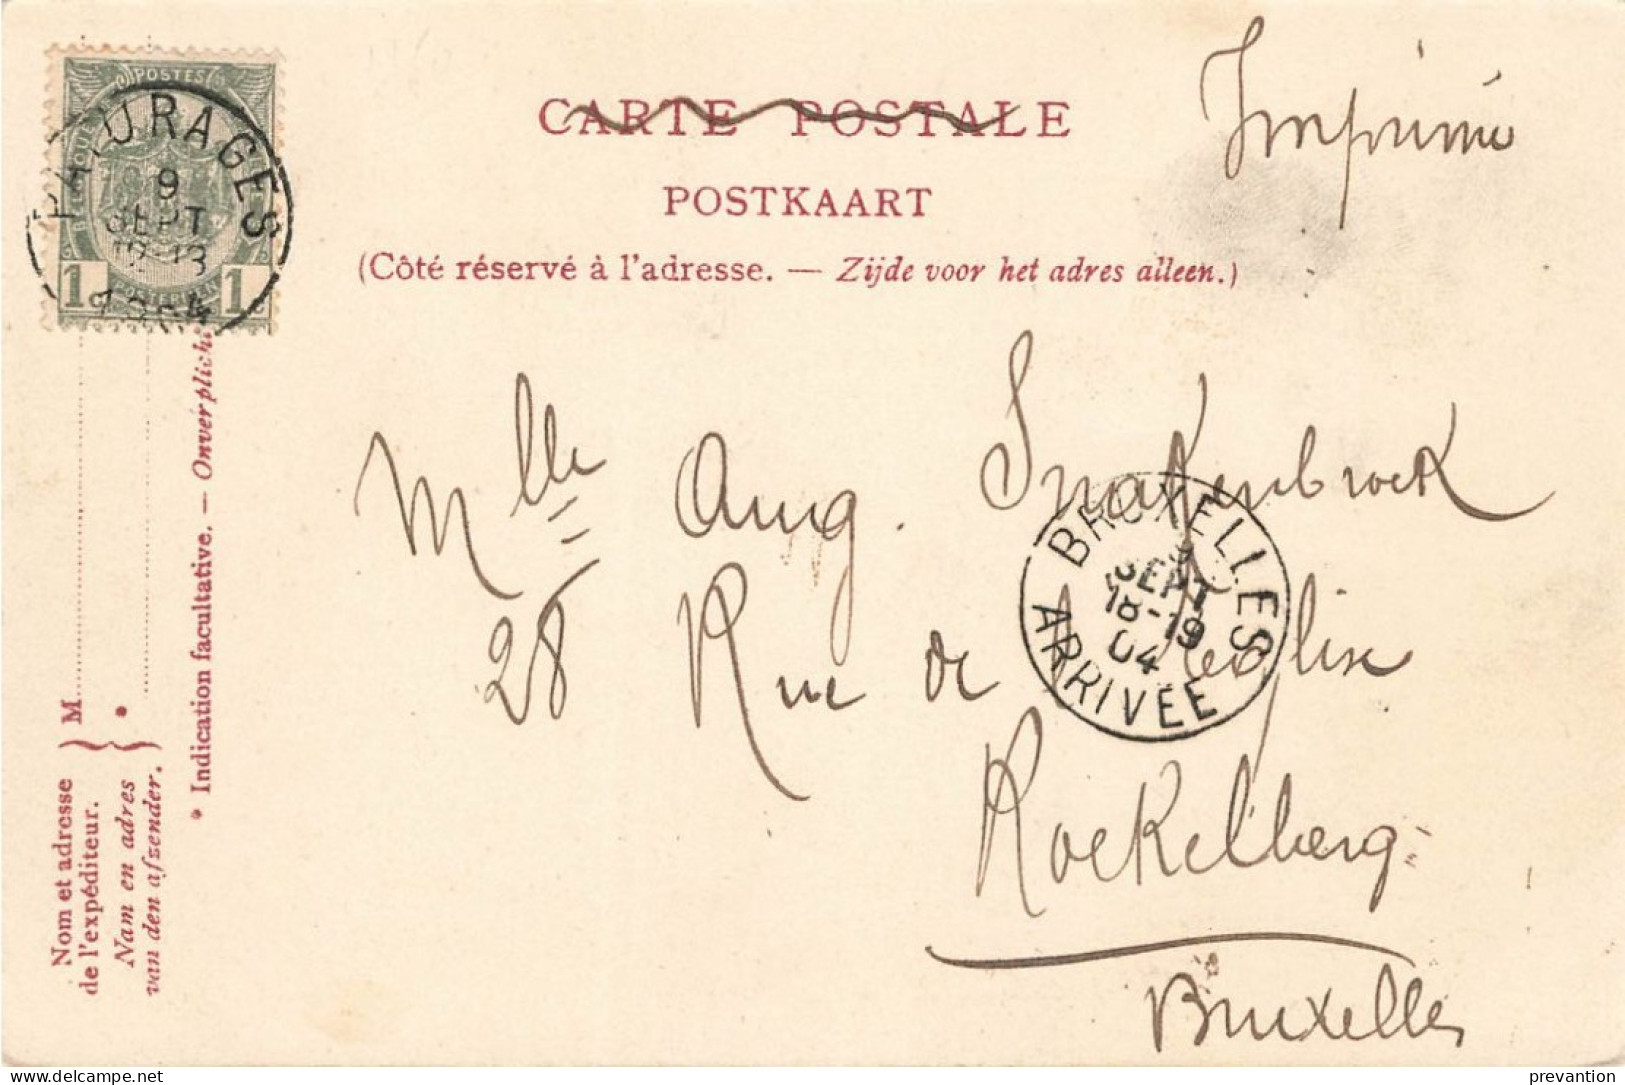 CARTE POSTALE
Imprimé
POSTKAART
(Côté réservé à l'adresse. — Zijde voor het adres alleen.)
POSTES
PATURAGES
9
SEPT
12-13
1904
1c 1c
Mlle Aug. Snakenbroek
28 Rue de l'Eglise
Koekelberg
Bruxelles
BRUXELLES
9
SEPT
18-19
04
ARRIVÉE
Nom et adresse
de l'expéditeur.
Nam en adres
van den afzender.
M
*
* Indication facultative. — Onverplicht
delcampe.net
prevantion